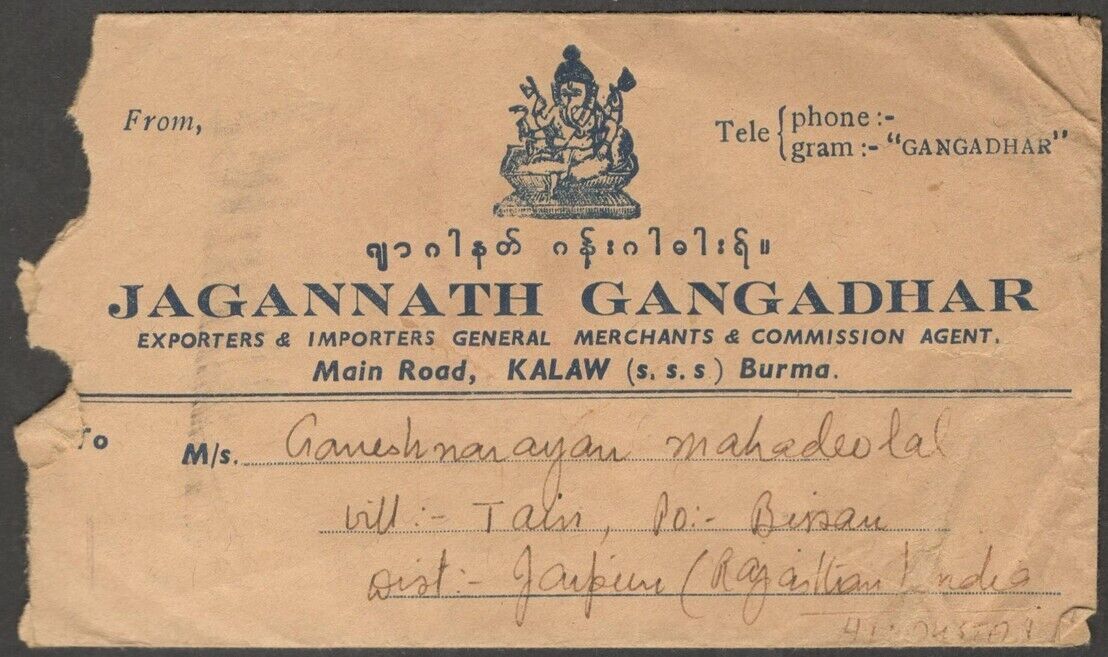 From,
Tele { phone :-
gram :- "GANGADHAR"
ဂျာဂါနတ် ဂန်းဂါဓါးရ်။
JAGANNATH GANGADHAR
EXPORTERS & IMPORTERS GENERAL MERCHANTS & COMMISSION AGENT.
Main Road, KALAW (s. s. s) Burma.
To M/s. Ganeshnarayan Mahadeolal
Vill :- Tain, Po :- Bissau
Dist :- Jaipur (Rajasthan) India